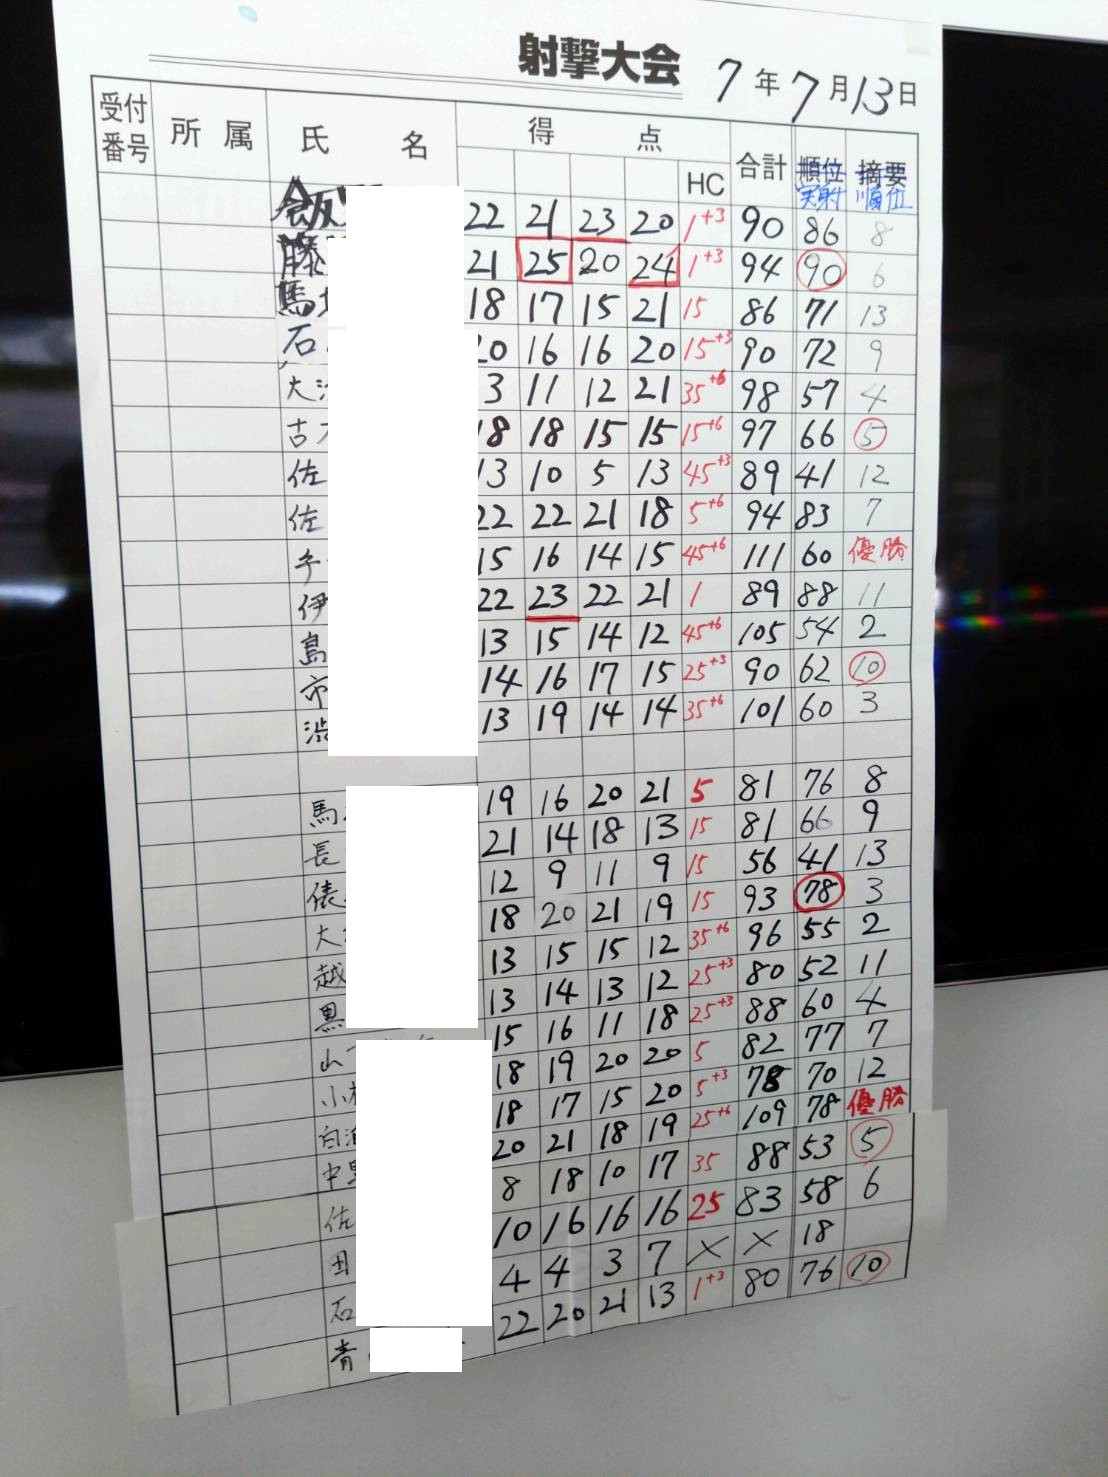 射撃大会 7年7月13日
受付番号 所属 氏名 得点 HC 合計 順位 実射 摘要 順位
飯 22 21 23 20 1+3 90 86 8
藤 21 25 20 24 1+3 94 90 6
馬 18 17 15 21 15 86 71 13
石 20 16 16 20 15+3 90 72 9
大 3 11 12 21 35+6 98 57 4
古 18 18 15 15 15+6 97 66 5
佐 13 10 5 13 45+3 89 41 12
佐 22 22 21 18 5+6 94 83 7
手 15 16 14 15 45+6 111 60 優勝
伊 22 23 22 21 1 89 88 11
島 13 15 14 12 45+6 105 54 2
市 14 16 17 15 25+3 90 62 10
渋 13 19 14 14 35+6 101 60 3
馬 19 16 20 21 5 81 76 8
長 21 14 18 13 15 81 66 9
俵 12 9 11 9 15 56 41 13
大 18 20 21 19 15 93 78 3
越 13 15 15 12 35+6 96 55 2
黒 13 14 13 12 25+3 80 52 11
山 15 16 11 18 25+3 88 60 4
小 18 19 20 20 5 82 77 7
白 18 17 15 20 5+3 78 70 12
中 20 21 18 19 25+6 109 78 優勝
佐 8 18 10 17 35 88 53 5
田 10 16 16 16 25 83 58 6
石 4 4 3 7 × × 18
青 22 20 21 13 1+3 80 76 10